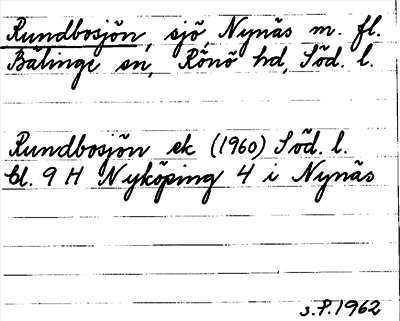 Rundbosjön, sjö, Nynäs m. fl.
Bälinge sn, Rönö hd, Söd. l.
Rundbosjön ek (1960) Söd. l.
bl. 9 H Nyköping 4 i Nynäs
s.P.1962